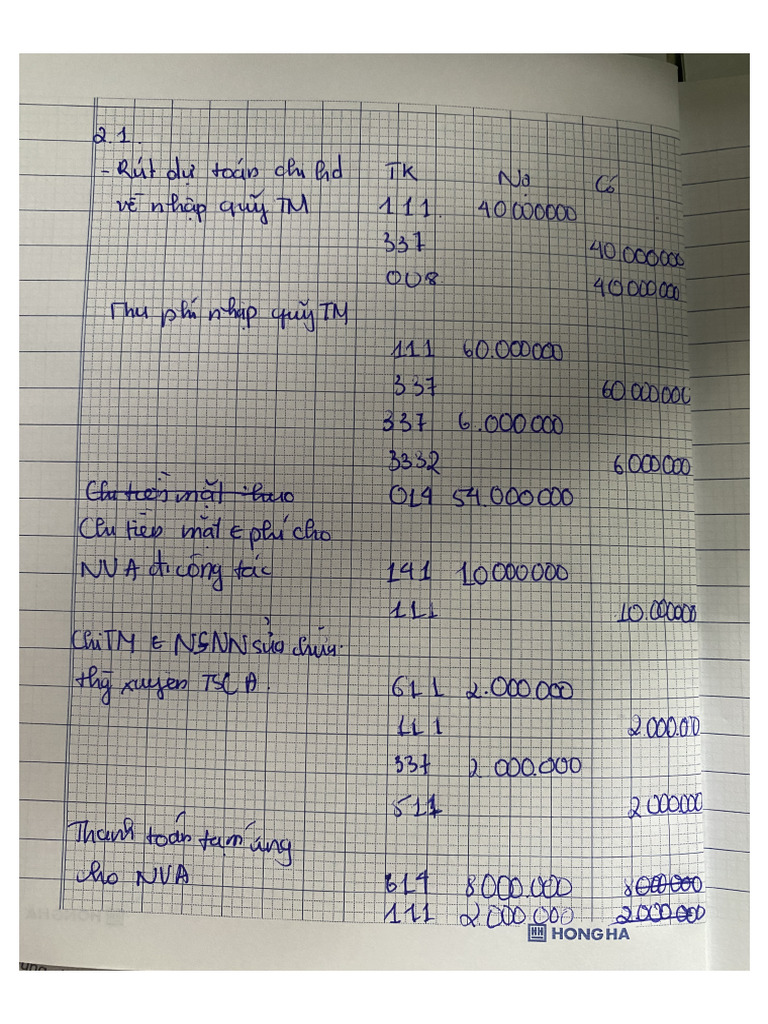 2.1.
- Rút dự toán chi hđ TK Nợ Có
về nhập quỹ TM 111 40.000000
337 40.000000
008 40000000
Thu phí nhập quỹ TM
111 60.000000
337 60.000000
337 6.000000
3332 6000000
Chi tiền mặt 014 54.000000
Chi tiền mặt € phí cho
NVA đi công tác 141 10000000
111 10.000000
Chi TM € NSNN sửa chữa
thg xuyên TSCĐ. 611 2.000.000
111 2.000.00
337 2 000.000
511 2000000
Thanh toán tạm ứng
cho NVA 614 8000.000 8000000
111 2000.000 2000.000
HH HONG HA